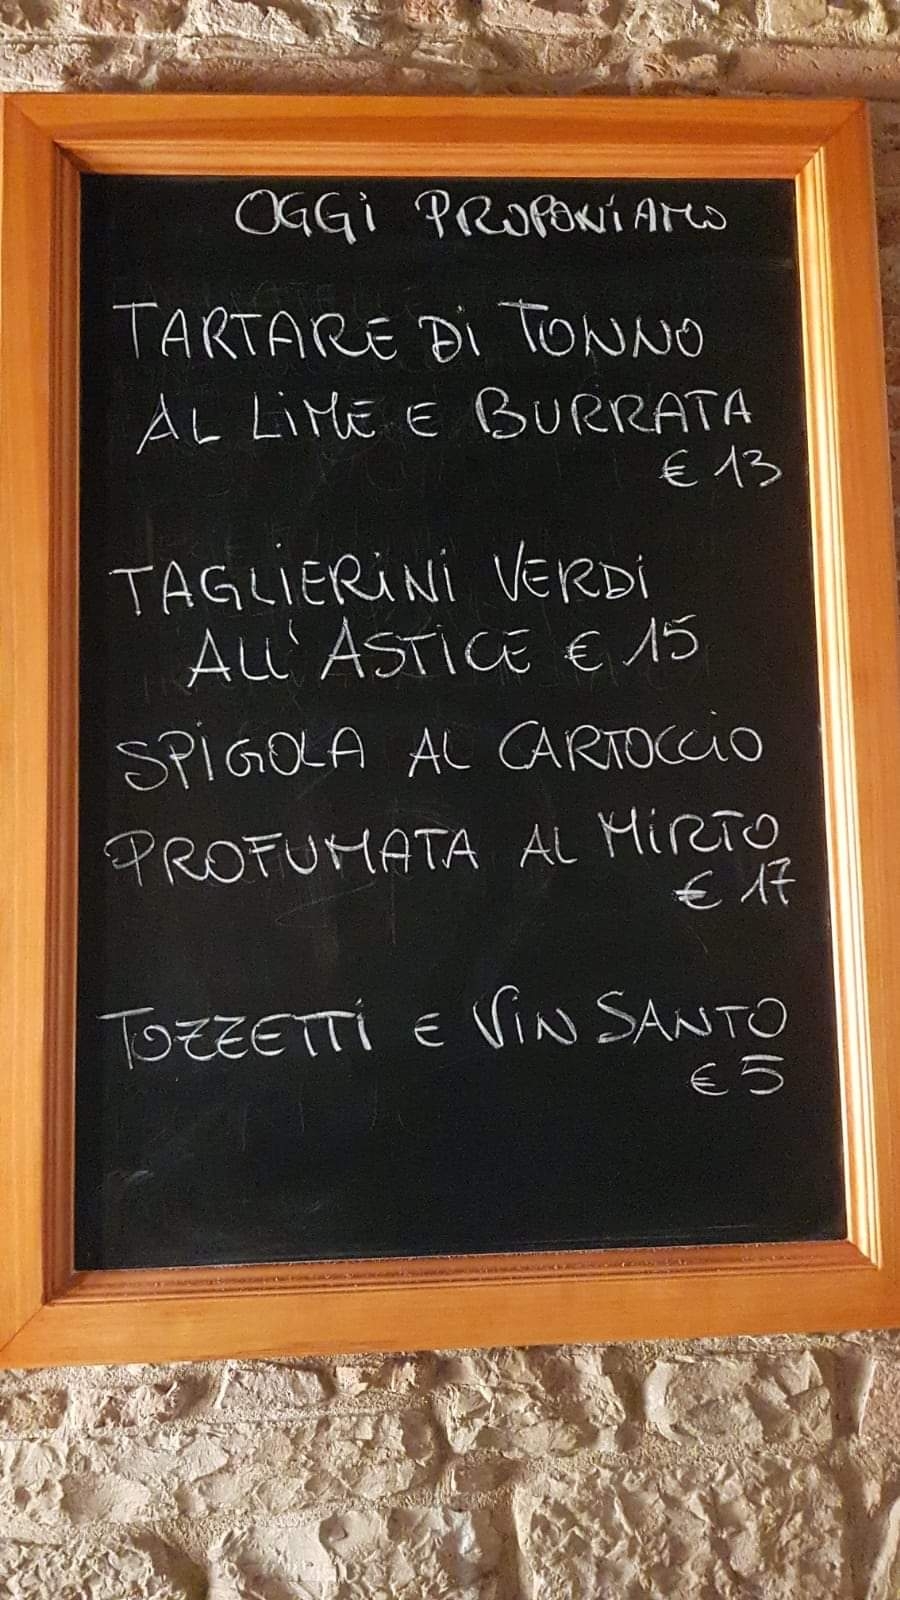 OGGI PROPONIAMO
TARTARE DI TONNO
AL LIME E BURRATA
€ 13
TAGLIERINI VERDI
ALL'ASTICE € 15
SPIGOLA AL CARTOCCIO
PROFUMATA AL MIRTO
€ 17
TOZZETTI E VIN SANTO
€ 5